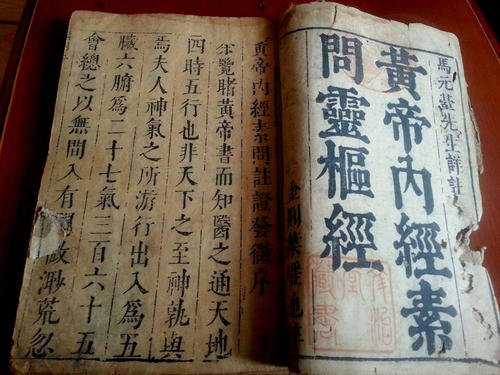 馬元臺先生詳註
黃帝內經素
問靈樞經
金閶葉
黃帝內經素問註證發微序
余覽睹黃帝書而知醫之通天地
四時五行也非天下之至神孰與
焉夫人神氣之所游行出入為五
臟六腑為二十七氣三百六十五
會總之以無間入有間故渺荒忽